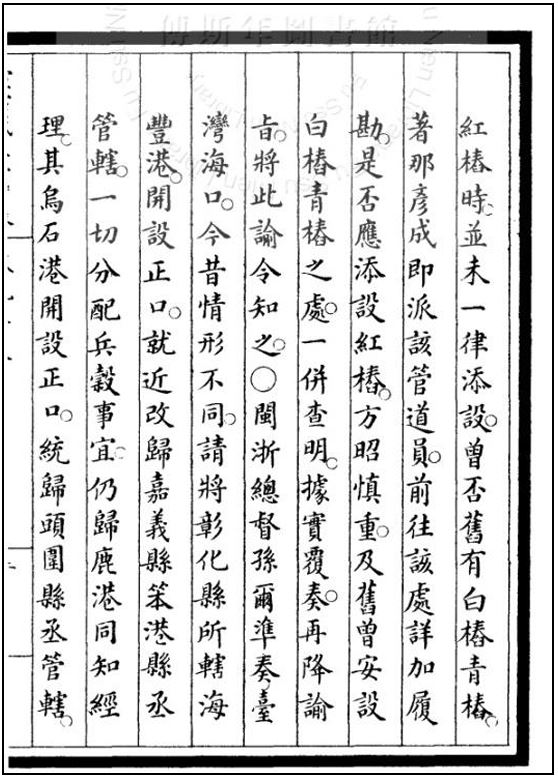 傅斯年圖書館
紅樁時。並未一律添設。曾否舊有白樁青樁。
著那彥成即派該管道員。前往該處詳加履
勘。是否應添設紅樁。方昭慎重。及舊曾安設
白樁青樁之處。一併查明。據實覆奏。再降諭
旨。將此諭令知之。○閩浙總督孫爾準奏。臺
灣海口。今昔情形不同。請將彰化縣所轄海
豐港。開設正口。就近改歸嘉義縣笨港縣丞
管轄。一切分配兵穀事宜。仍歸鹿港同知經
理。其烏石港開設正口。統歸頭圍縣丞管轄。